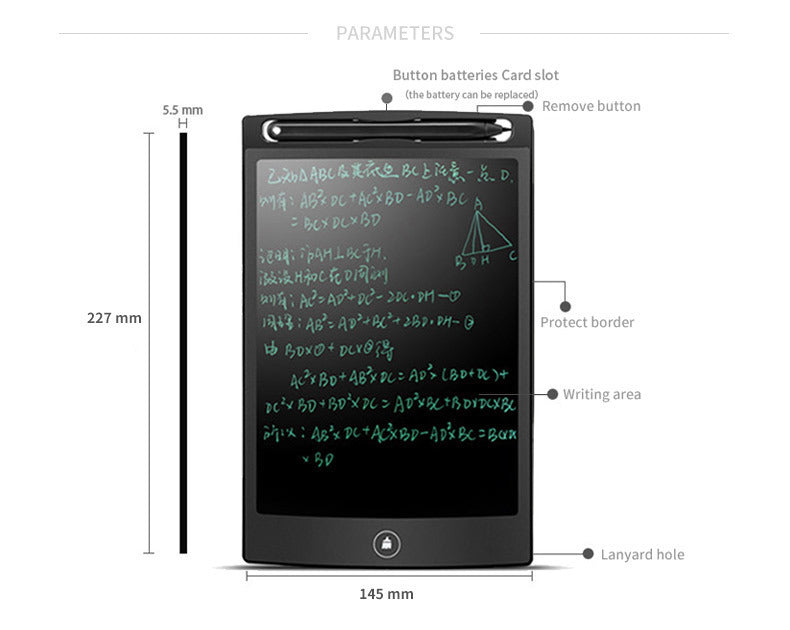 PARAMETERS
Button batteries Card slot
(the battery can be replaced)
Remove button
5.5 mm
已知△ABC及其底边BC上任意一点D.
则有: AB²×DC+AC²×BD-AD²×BC
=BC×DC×BD
A
B D H C
证明: 作AH⊥BC于H.
假设H和C在D同侧
则有: AC²=AD²+DC²-2DC·DH—①
同理: AB²=AD²+BC²+2BD·DH-②
由 BD×①+DC×②得
AC²×BD+AB²×DC=AD²×(BD+DC)+
DC²×BD+BD²×DC=AD²×BC+BD×DC×BC
所以: AB²×DC+AC²×BD-AD²×BC=BC×
×BD
227 mm
Protect border
Writing area
Lanyard hole
145 mm